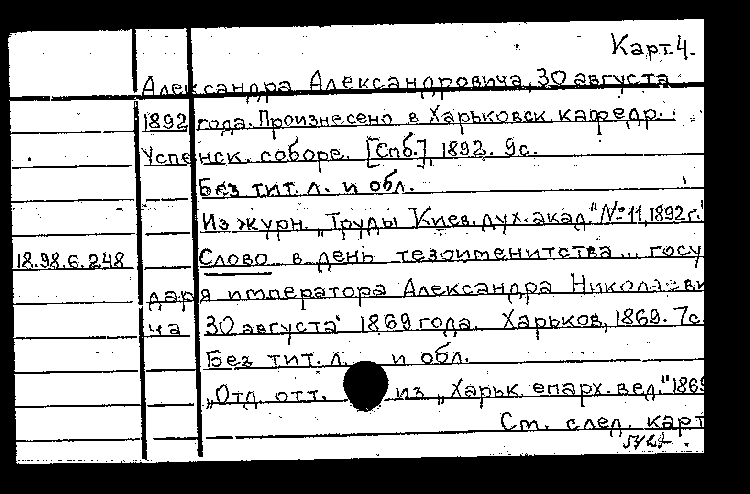 Карт. 4.
Александра Александровича, 30 августа
1892 года. Произнесено в Харьковск. кафедр.
Успенск. соборе. [Спб.], 1892. 9с.
Без тит. л. и обл.
Из журн. „Труды Киев. дух. акад." №11, 1892 г."
18.98.6.248 Слово в день тезоименитства... госу
даря императора Александра Николаеви
ча 30 августа 1869 года. Харьков, 1869. 7с.
Без тит. л. и обл.
„Отд. отт. из „Харьк. епарх. вед." 1869
См. след. карт